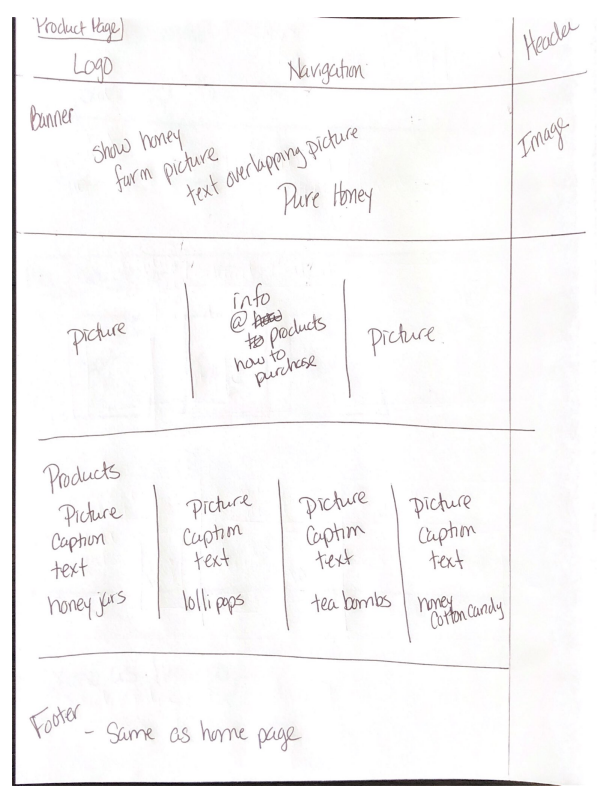 Product Page
Header
Logo
Navigation
Banner
Image
show honey
farm picture
text overlapping picture
Pure Honey
Picture
info
@ how
to products
how to
purchase
Picture.
Products
Picture
Caption
text
honey jars
Picture
Caption
text
lollipops
Picture
Caption
text
tea bombs
Picture
Caption
text
honey
Cotton candy
Footer
- Same as home page